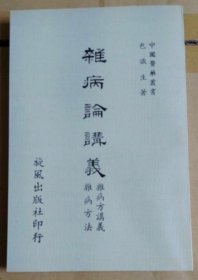 中國醫藥叢書
包識生著
雜病論講義
雜病方講義
雜病方法
旋風出版社印行